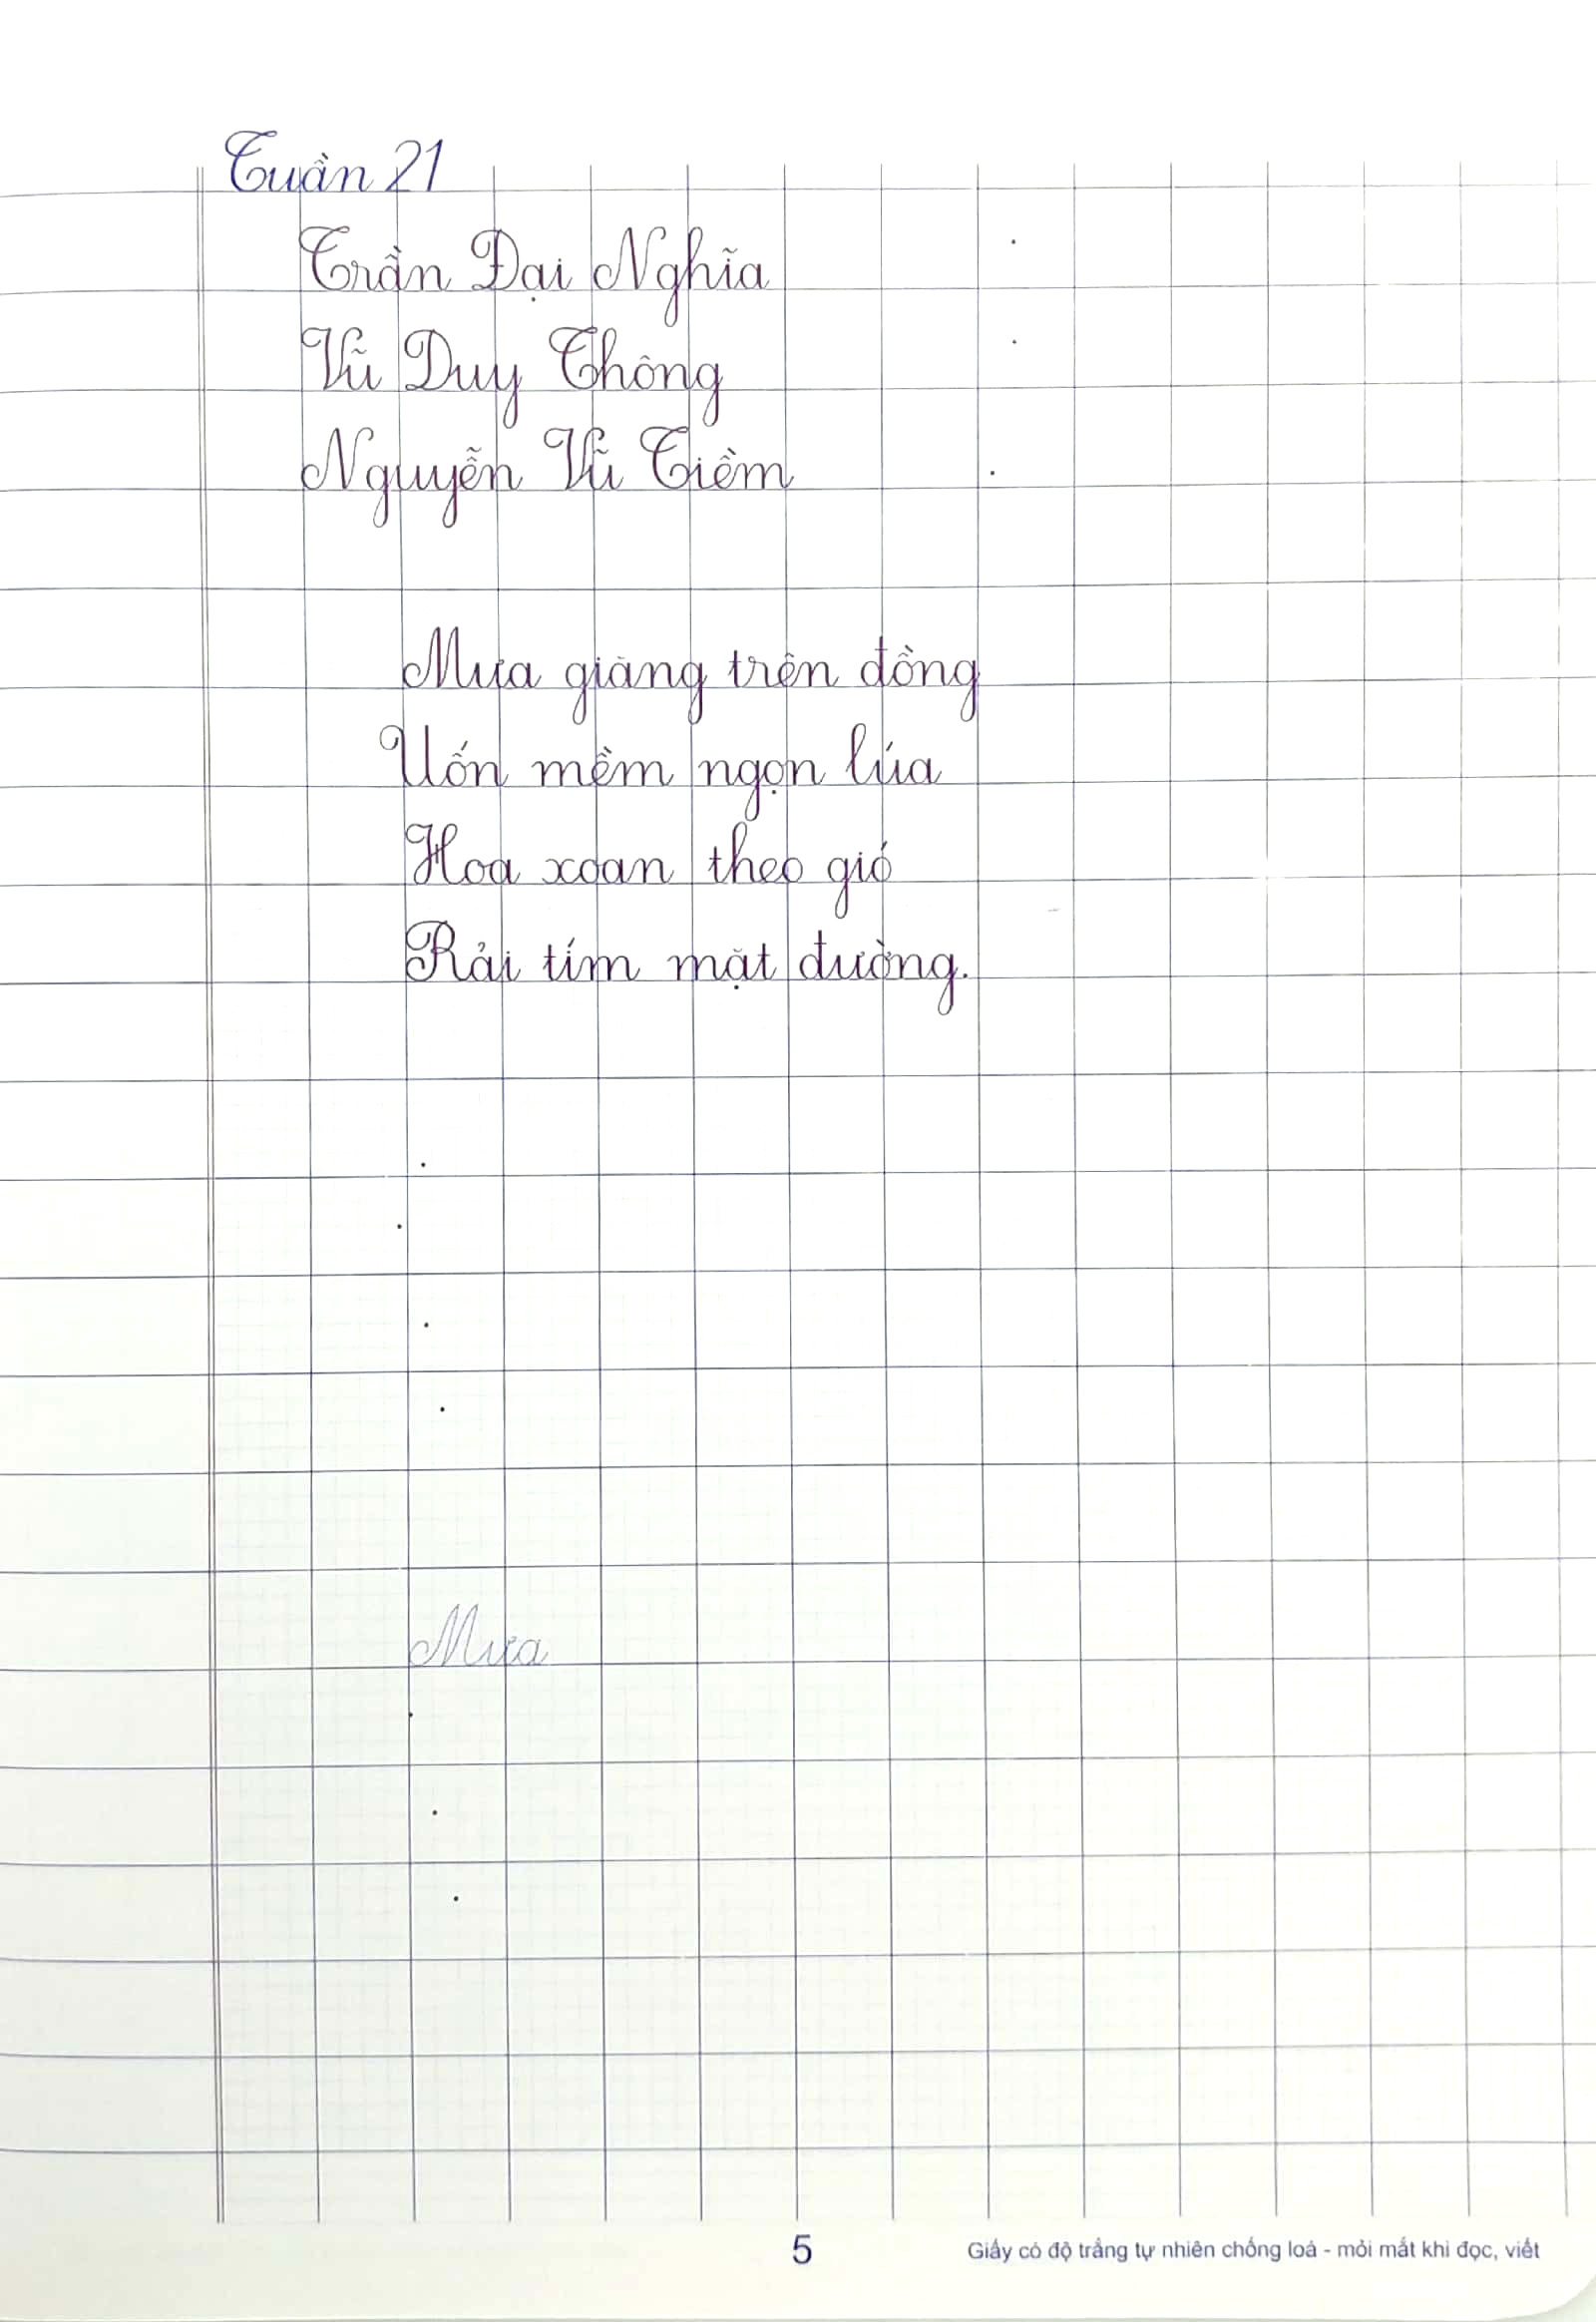 Tuần 21
Trần Đại Nghĩa
Vũ Duy Thông
Nguyễn Vũ Tiềm
Mưa giăng trên đồng
Uốn mềm ngọn lúa
Hoa xoan theo gió
Rải tím mặt đường.
Mưa
5
Giấy có độ trắng tự nhiên chống loá - mỏi mắt khi đọc, viết